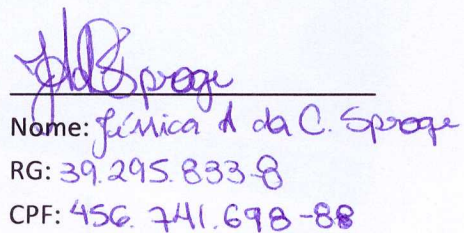 Sproge
Nome: Jéssica A da C. Sproge
RG: 39.295.833-8
CPF: 456.741.698-88